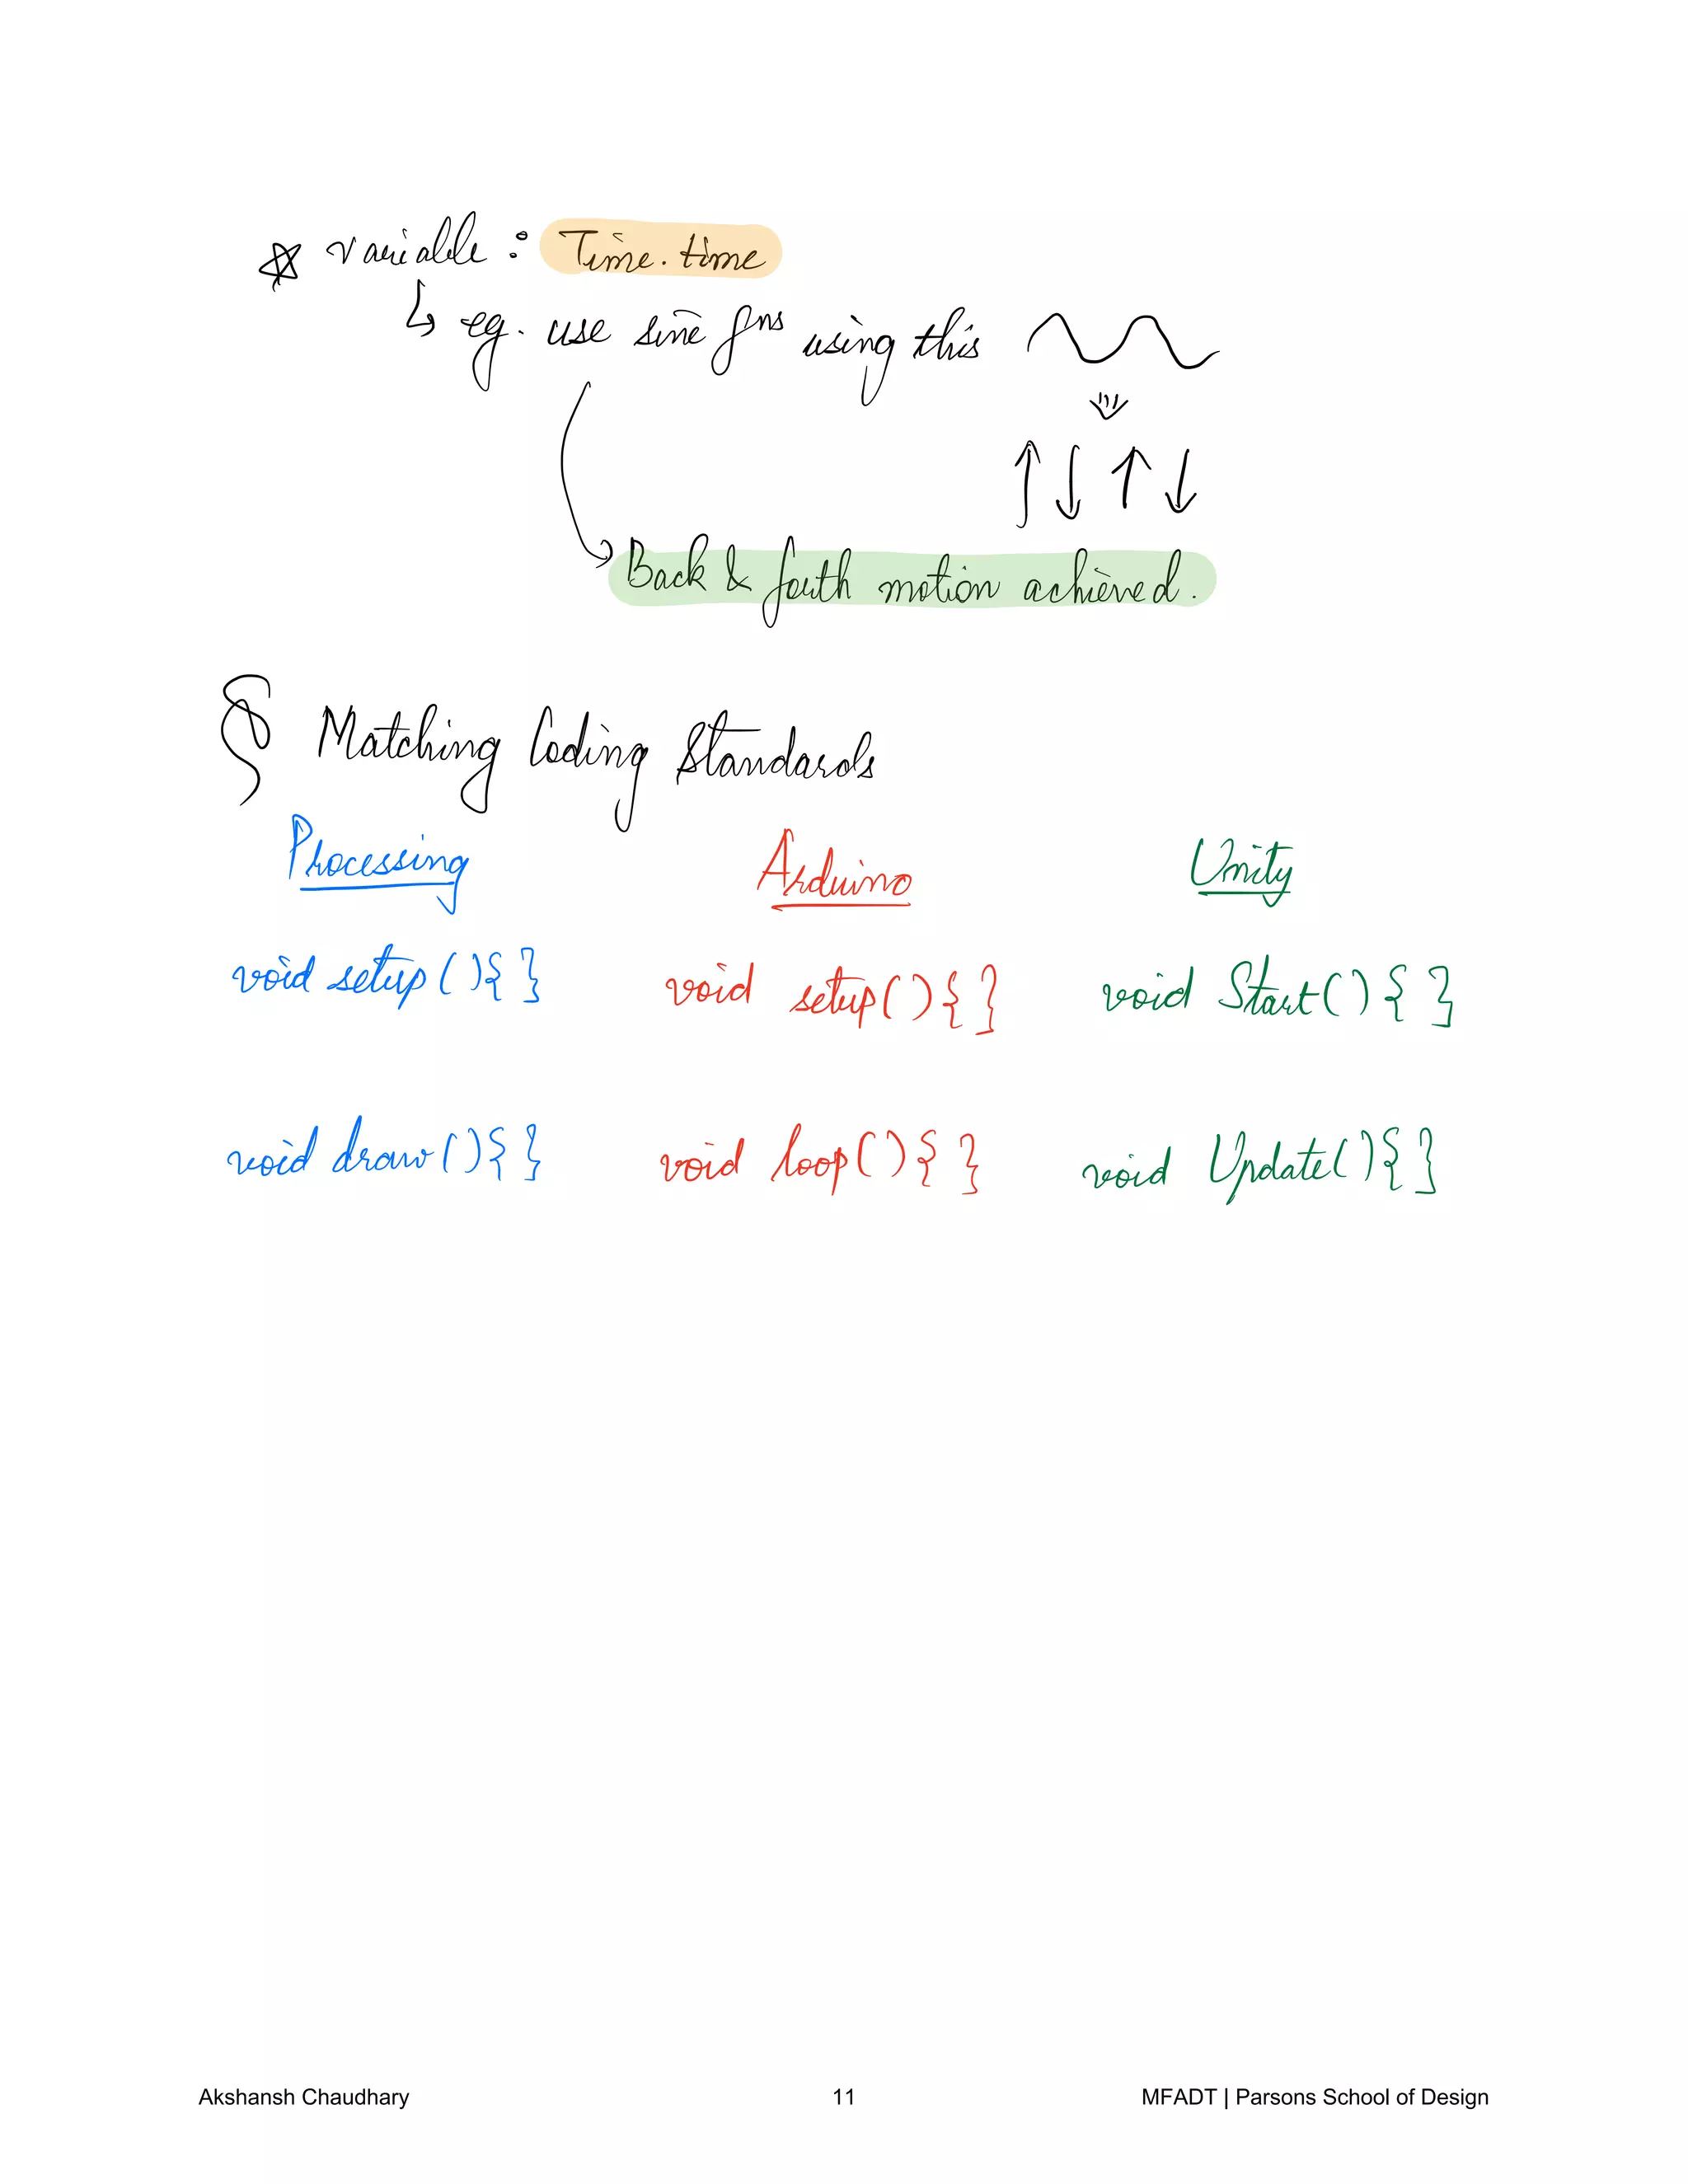 ☆ variable : Time.time
↳ eg. use sine fns using this
Back & forth motion achieved.
§ Matching Coding Standards
Processing Arduino Unity
void setup(){ } void setup(){ } void Start(){ }
void draw(){ } void loop(){ } void Update(){ }
Akshansh Chaudhary 11 MFADT | Parsons School of Design